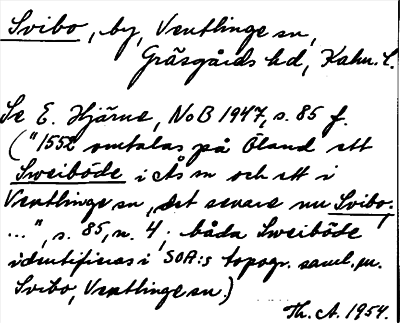 Svibo, by, Ventlinge sn,
Gräsgårds hd, Kalm. l.
Se E. Hjärne, NoB 1947, s. 85 f.
("1552 omtalas på Öland ett
Sweiböde i Ås sn och ett i
Ventlinge sn, det senare nu Svibo,
...", s. 85, n. 4; båda Sweiböde
identifieras i SOA:s topogr. saml. m.
Svibo, Ventlinge sn.)
Th. A. 1954.